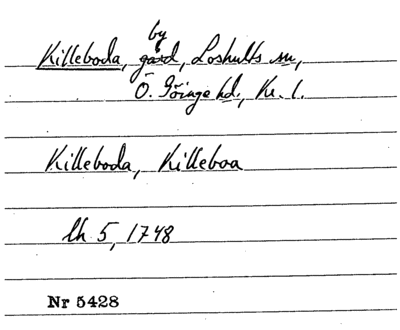 by
Killeboda, gård, Loshults sn,
Ö. Göinge hd., Kr. l.
Killeboda, Killeboa
lh 5, 1748
Nr 5428